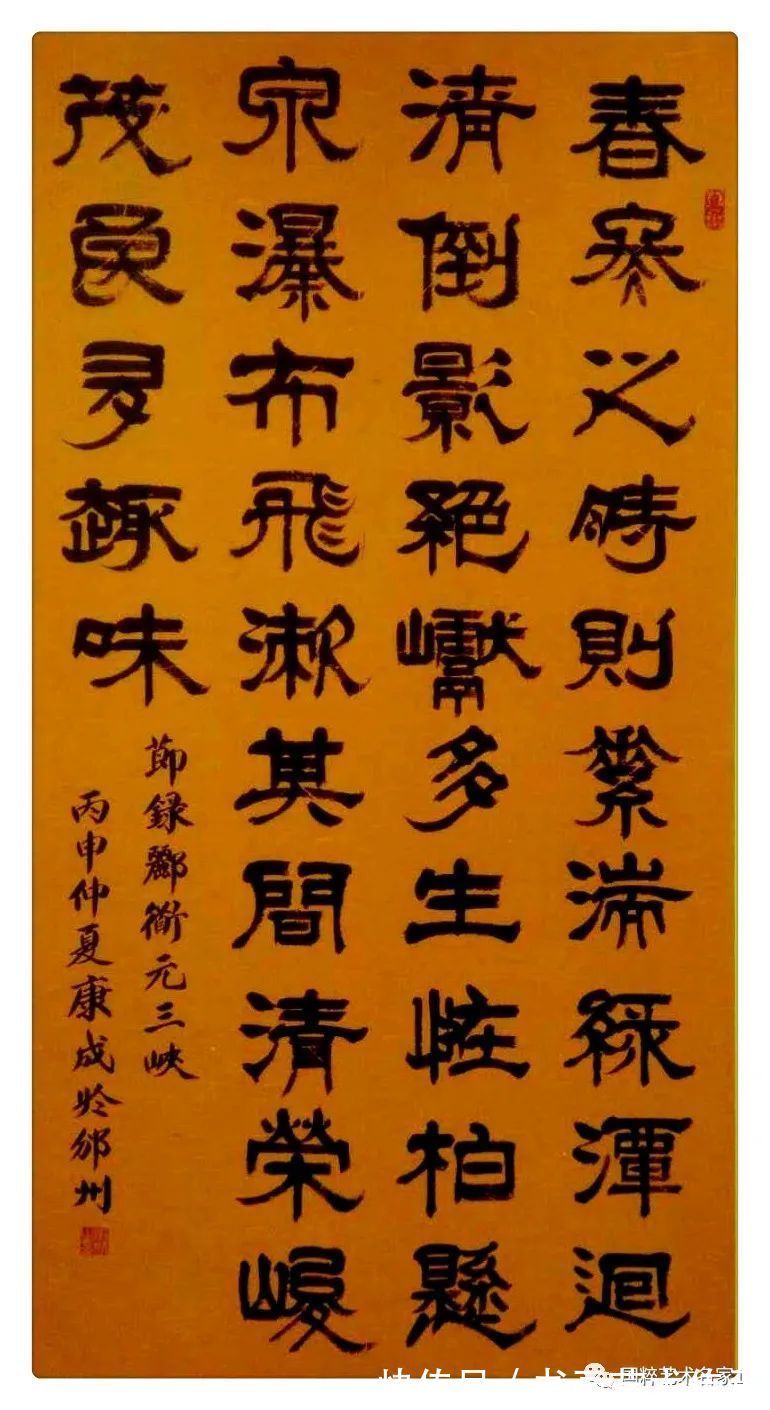 春寒之時則素湍綠潭迴
清倒影絕巘多生怪柏懸
泉瀑布飛漱其間清榮峻
茂良多趣味
節錄酈衜元三峽
丙申仲夏康成於邠州
国粹艺术名家